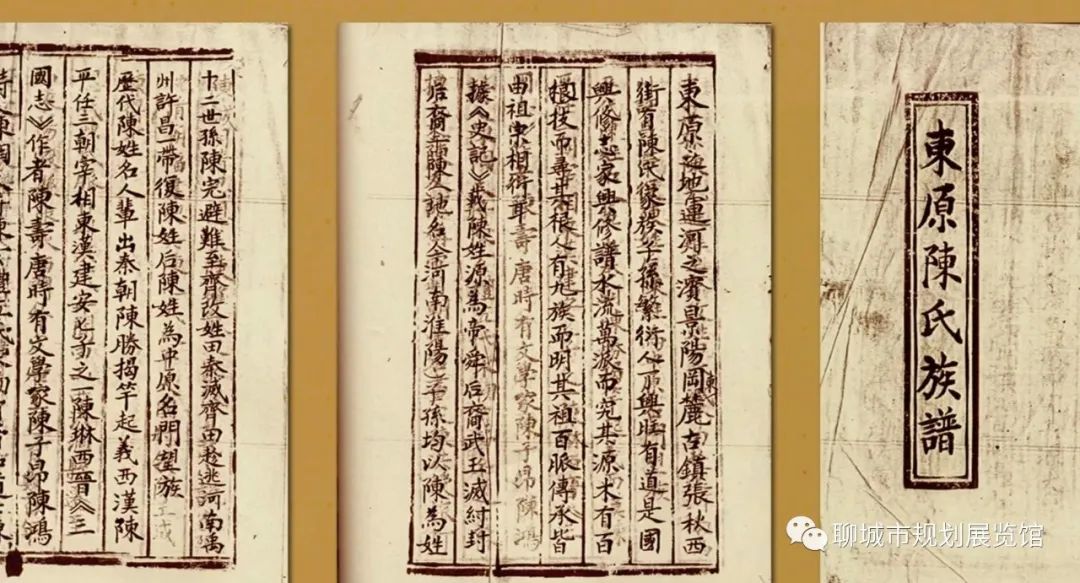 東原陳氏族譜
東原之地運河之濱景陽岡麓古鎮張秋西
街有陳氏家族子孫繁衍人丁興旺有道是國
興修志家興修譜水流萬派而究其源木有百
枝而尋其根人有九族而明其祖百脈傳承皆
由祖宗相衍
據《史記》載陳姓源為帝舜后裔武王滅紂封
裔 陳 地名今河南淮陽之子孫均以陳為姓
十二世孫陳完避難至齊改姓田秦滅齊田 逃河南
州許昌一帶復陳姓后陳姓為中原名門望族
歷代陳姓名人輩出秦朝陳勝揭竿起義西漢陳
平任三朝宰相東漢建安七子之一陳琳西晉《三
國志》作者陳壽唐時有文學家陳子昂陳鴻
聊城市规划展览馆